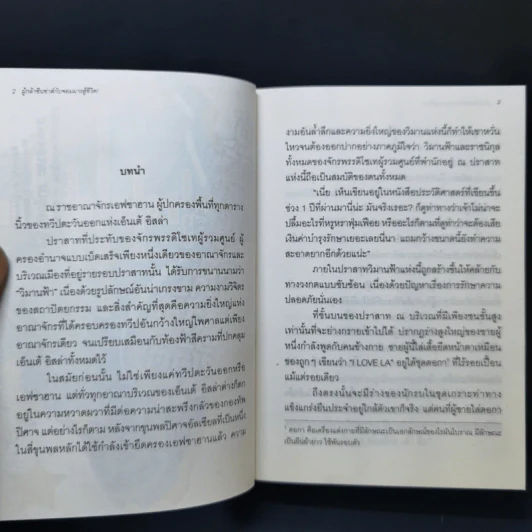 2 ผู้กล้าซึนซ่าส์กับจอมมารสู้ชีวิต
บทนำ
ณ ราชอาณาจักรเอฟซาฮาน ผู้ปกครองพื้นที่ทุกตาราง
นิ้วของทวีปตะวันออกแห่งเอ็นเต้ อิสล่า
ปราสาทที่ประทับของจักรพรรดิโชเทผู้รวมศูนย์ ผู้
ครองอำนาจแบบเบ็ดเสร็จเพียงหนึ่งเดียวของอาณาจักรและ
บริเวณเมืองที่อยู่รายรอบปราสาทนั้น ได้รับการขนานนามว่า
"วิมานฟ้า" เนื่องด้วยรูปลักษณ์อันน่าเกรงขาม ความงามวิจิตร
ของสถาปัตยกรรม และสิ่งสำคัญที่สุดคือความยิ่งใหญ่แห่ง
อาณาจักรที่ได้ครอบครองทวีปอันกว้างใหญ่ไพศาลแต่เพียง
อาณาจักรเดียว จนเปรียบเสมือนกับท้องฟ้าสีครามที่ปกคลุม
เอ็นเต้ อิสล่าทั้งหมดไว้
ในสมัยก่อนนั้น ไม่ใช่เพียงแค่ทวีปตะวันออกหรือ
เอฟซาฮาน แต่ทั่วทุกอาณาบริเวณของเอ็นเต้ อิสล่าต่างก็ตก
อยู่ในความหวาดผวาที่มีต่อความน่าสะพรึงกลัวของกองทัพ
ปีศาจ แต่อย่างไรก็ตาม หลังจากขุนพลปีศาจอัลซิเอลที่เป็นหนึ่ง
ในสี่ขุนพลหลักได้ใช้กำลังเข้ายึดครองเอฟซาฮานแล้ว ความ
3
งามอันล้ำลึกและความยิ่งใหญ่ของวิมานแห่งนี้ก็ทำให้เขาหวั่น
ไหวจนต้องออกปากอย่างภาคภูมิใจว่า วิมานฟ้าและราชนิกุล
ทั้งหมดของจักรพรรดิโชเทผู้รวมศูนย์ที่พำนักอยู่ ณ ปราสาท
แห่งนี้ถือเป็นสมบัติของตนทั้งหมด
"เนี่ย เห็นเขียนอยู่ในหนังสือประวัติศาสตร์ที่เขียนขึ้น
ช่วง 1 ปีที่ผ่านมานี่น่ะ มันจริงเรอะ? ก็ดูท่าทางว่าเจ้าไม่น่าจะ
ปลื้มอะไรที่หรูหราฟุ่มเฟือย หรืออะไรก็ตามที่ดูท่าว่าจะต้องเสีย
เงินค่าบำรุงรักษาเยอะเลยนี่นา แถมกว้างขนาดนี้ยังทำความ
สะอาดยากอีกด้วยแน่ะ"
ภายในปราสาทวิมานฟ้าแห่งนี้ถูกสร้างขึ้นให้คล้ายกับ
ทางวงกตแบบซับซ้อน เนื่องด้วยปัญหาเรื่องการรักษาความ
ปลอดภัยนั่นเอง
ที่ชั้นบนของปราสาท ณ บริเวณที่มีเพียงชนชั้นสูง
เท่านั้นที่จะย่างกรายเข้าไปได้ ปรากฏร่างสูงใหญ่ของชายผู้
หนึ่งกำลังพูดกับคนข้างกาย ชายผู้นี้ใส่เสื้อยืดหน้าตาเหมือน
ของถูกๆ เขียนว่า "I LOVE LA" อยู่ใต้ชุดตอกา¹ ที่ไร้รอยเปื้อน
แม้แต่รอยเดียว
ถึงตรงนั้นจะมีร่างของนักรบในชุดเกราะท่าทาง
แข็งแกร่งยืนประจำอยู่ใกล้ตัวเขาก็จริง แต่คนที่ผู้ชายใส่ตอกา
¹ ตอกา คือเครื่องแต่งกายที่มีลักษณะเป็นเอกลักษณ์ของโรมันโบราณ มีลักษณะ
เป็นผืนผ้ายาว ใช้พันรอบตัว